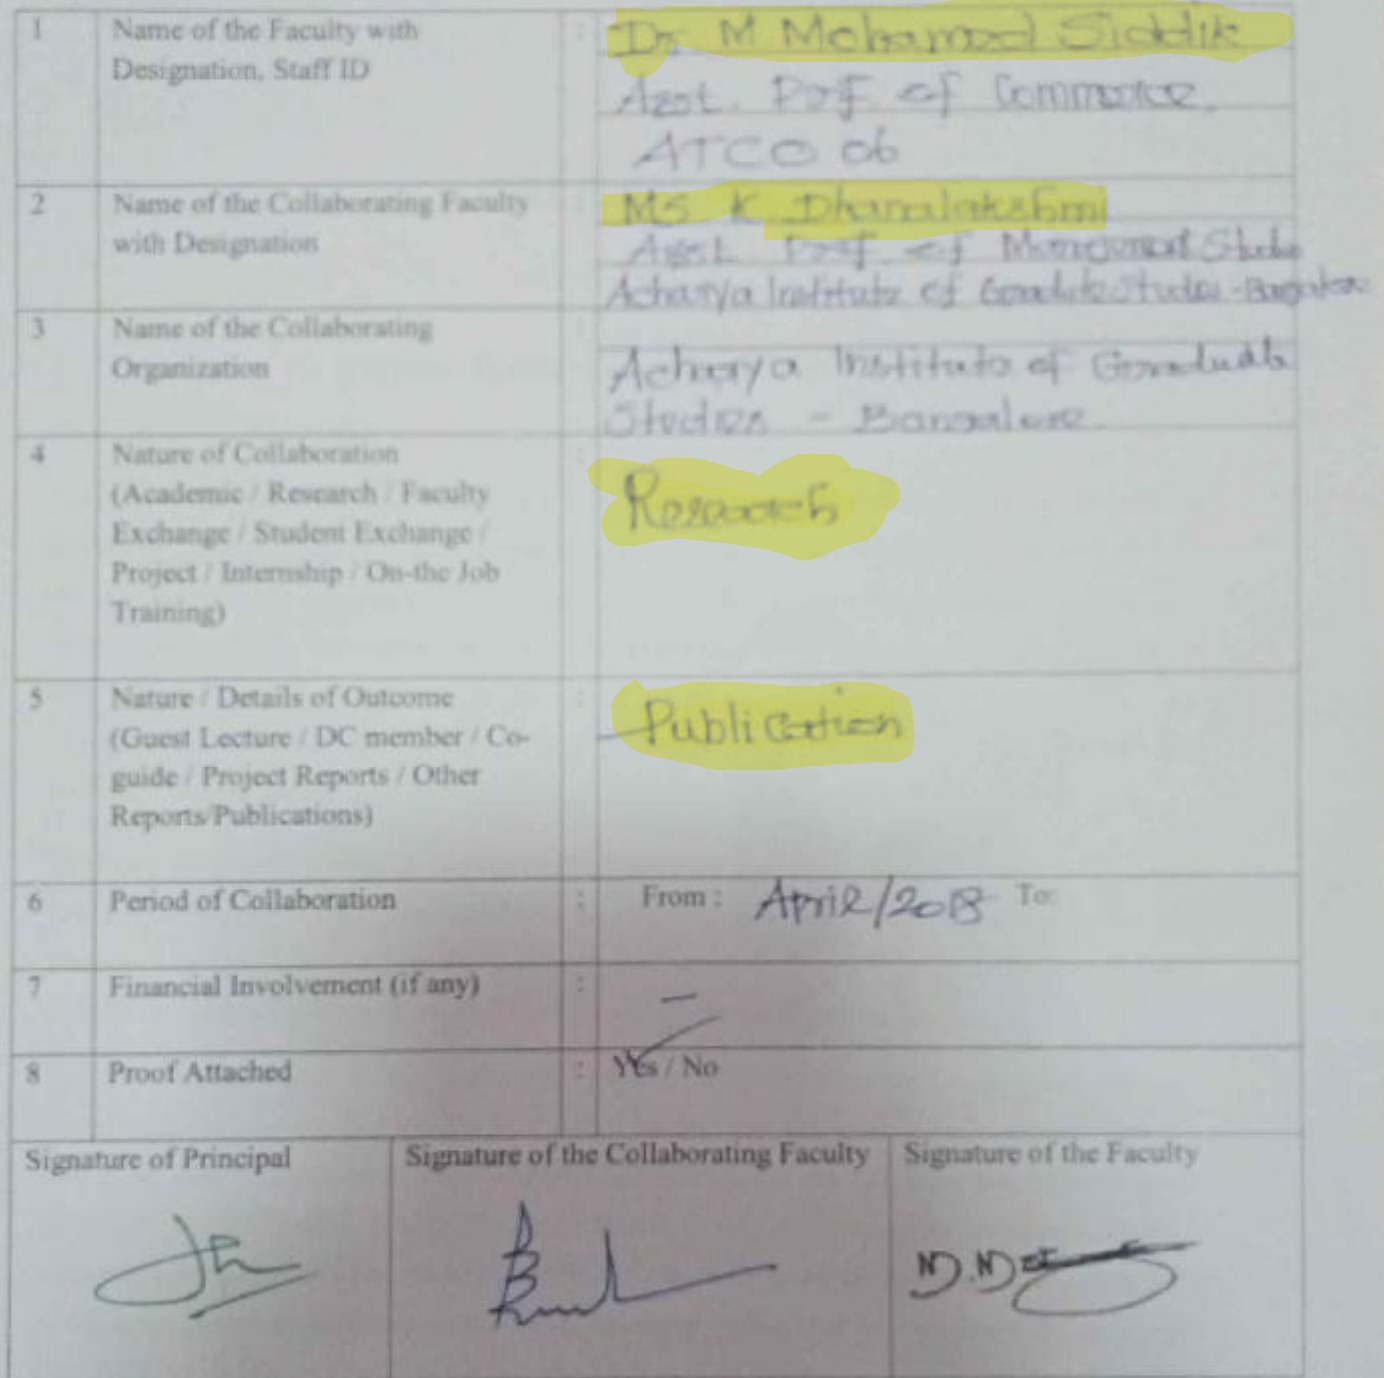 1 Name of the Faculty with : Dr M Mohamed Siddik
Designation, Staff ID Asst. Prof of Commerce,
ATCO 06
2 Name of the Collaborating Faculty : MS K Dhanalakshmi
with Designation Asst. Prof of Management Studies
Acharya Institute of Graduate Studies - Bangalore
3 Name of the Collaborating :
Organization Acharya Institute of Graduate
Studies - Bangalore.
4 Nature of Collaboration :
(Academic / Research / Faculty Research
Exchange / Student Exchange /
Project / Internship / On-the Job
Training)
5 Nature / Details of Outcome : Publication
(Guest Lecture / DC member / Co-
guide / Project Reports / Other
Reports/Publications)
6 Period of Collaboration : From : April/2018 To:
7 Financial Involvement (if any) : -
8 Proof Attached : Yes / No
Signature of Principal Signature of the Collaborating Faculty Signature of the Faculty